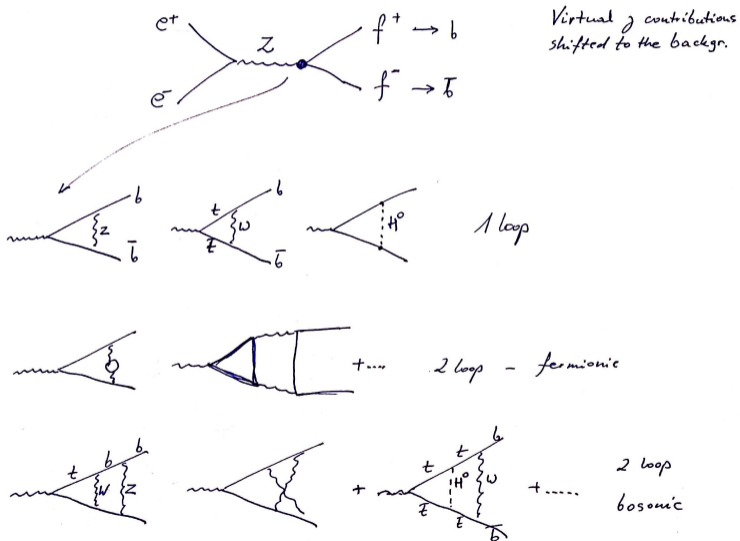 e+ Z f+ → b
e- f- → b̄
Virtual γ contributions
shifted to the backgr.
b Z b̄
t W t̄ b b̄
H°
1 loop
+.... 2 loop - fermionic
t b b W Z
+ t t b H° W t̄ t̄ b̄
+..... 2 loop
bosonic